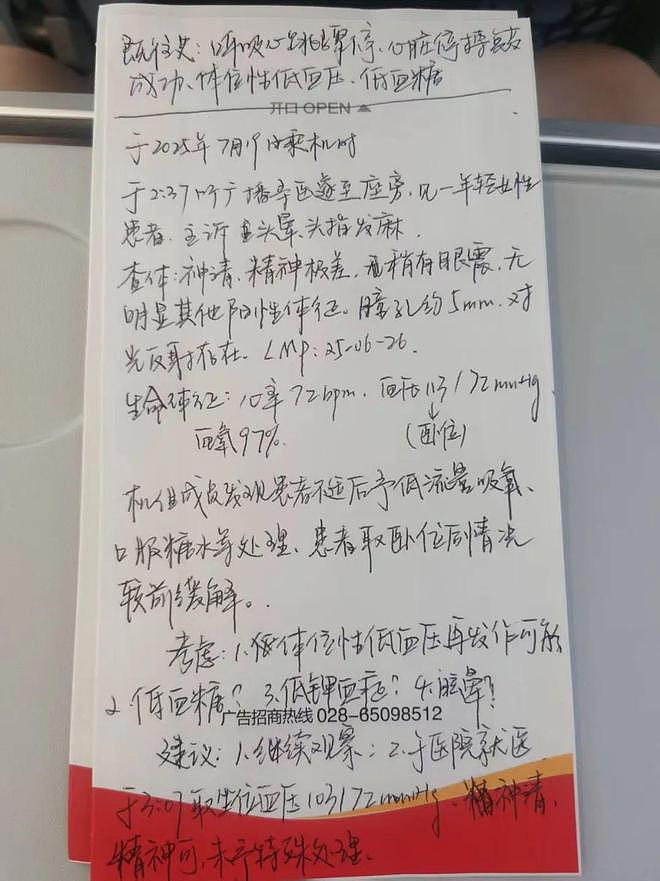 既往史：呼吸心跳骤停、心脏停搏复苏
成功、体位性低血压、低血糖
开口 OPEN
于2025年7月19日乘机时
于2:37听广播寻医遂至座旁，见一年轻女性
患者，主诉头晕、头指发麻，
查体：神清，精神极差，稍有眼震，无
明显其他阳性体征。瞳孔约5mm，对
光反射存在。LMP：25-06-26.
生命体征：心率72bpm，血压113/72mmHg
血氧97%（卧位）
机组成员发现患者不适后予低流量吸氧、
口服糖水等处理，患者取卧位后情况
较前缓解。
考虑：1.体位性低血压再发作可能
2.低血糖？ 3.低钾血症？ 4.脑晕？
广告招商热线 028-65098512
建议：1.继续观察；2.于医院就医
于3:07取坐位血压103/72mmHg、精神清，
精神可，未予特殊处理。